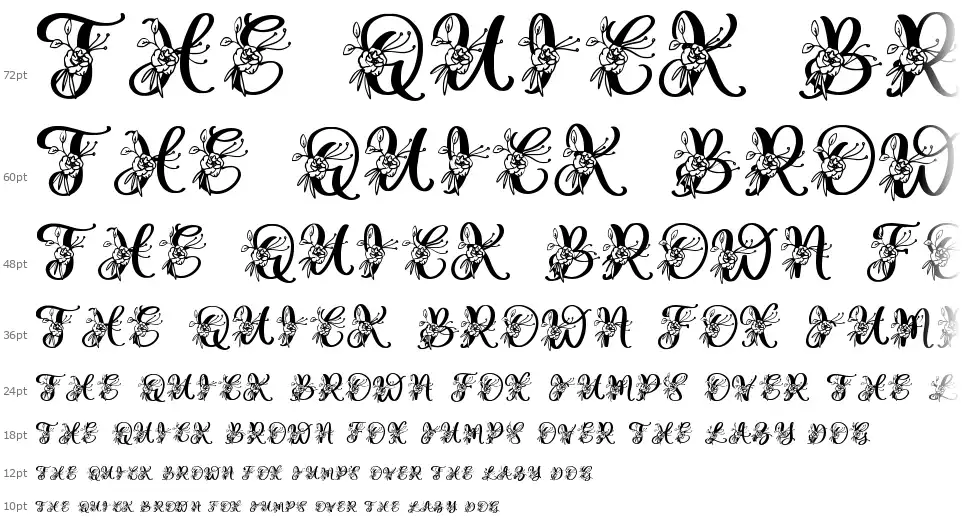 72pt THE QUICK BR
60pt THE QUICK BROW
48pt THE QUICK BROWN FO
36pt THE QUICK BROWN FOX JUM
24pt THE QUICK BROWN FOX JUMPS OVER THE L
18pt THE QUICK BROWN FOX JUMPS OVER THE LAZY DOG
12pt THE QUICK BROWN FOX JUMPS OVER THE LAZY DOG
10pt THE QUICK BROWN FOX JUMPS OVER THE LAZY DOG